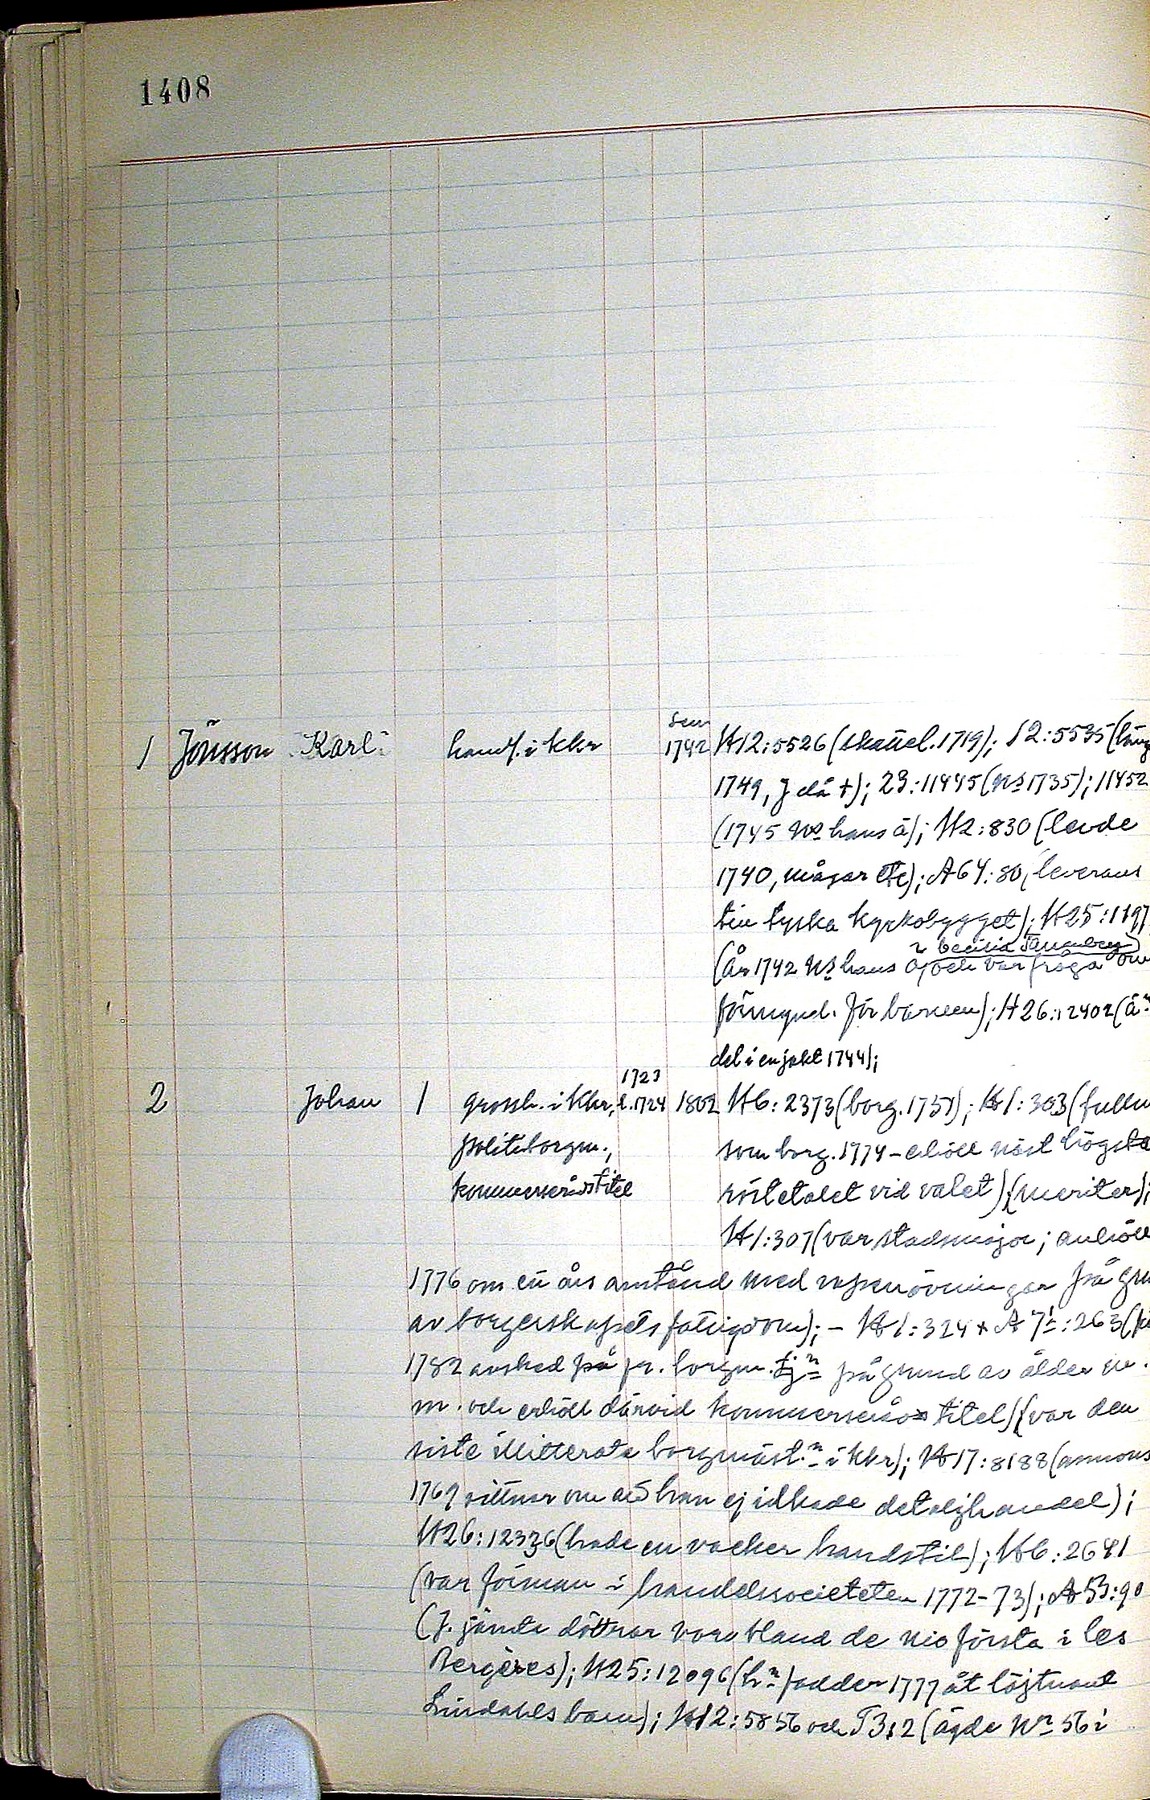 1408
sen
1 Jönsson Karl handl. i Kkr 1742 H12:5526 (skattel. 1719); 12:5535 (
1749, J då +); 23:11445 (No 1735); 11452
(1745 No hans ä); H2:830 (levde
1740, mågar etc); A64:80 (leverans
till tyska kyrkobygget); H25:1197
Cecilia
(År 1742 No hans ä och var fråga om
förmynd. för barnen); H26:12402 (
del i en jakt 1744);
1723
2 Johan 1 grossh. i Kkr, f. 1724 1802 H6:2373 (borg. 1757); H1:303 (
politiborgm., som borg. 1774 – erhöll näst högsta
kommerserådstitel röstetalet vid valet) (meriter);
H1:307 (var stadsmajor; anhöll
1776 om en års anstånd med vapenövningar på
av borgerskapets fattigdom); – H1:324 + A 71:263 (
1782 avsked på borgm. på grund av ålder
m. och erhöll därvid kommerseråds titel) (var den
siste illitterate borgmäst.n i Kkr); H17:8188 (annons
1769 vittnar om att han ej idkade detaljhandel);
H26:12336 (hade en vacker handstil); H6:2641
(var förman i handelssocieteten 1772-73); A53:90
(J. jämte döttrar voro bland de nio första i les
Bergères); H25:12096 (fadder 1777 åt löjtnant
Lindahls barn); H12:5856 och T3:2 (ägde No 56 i